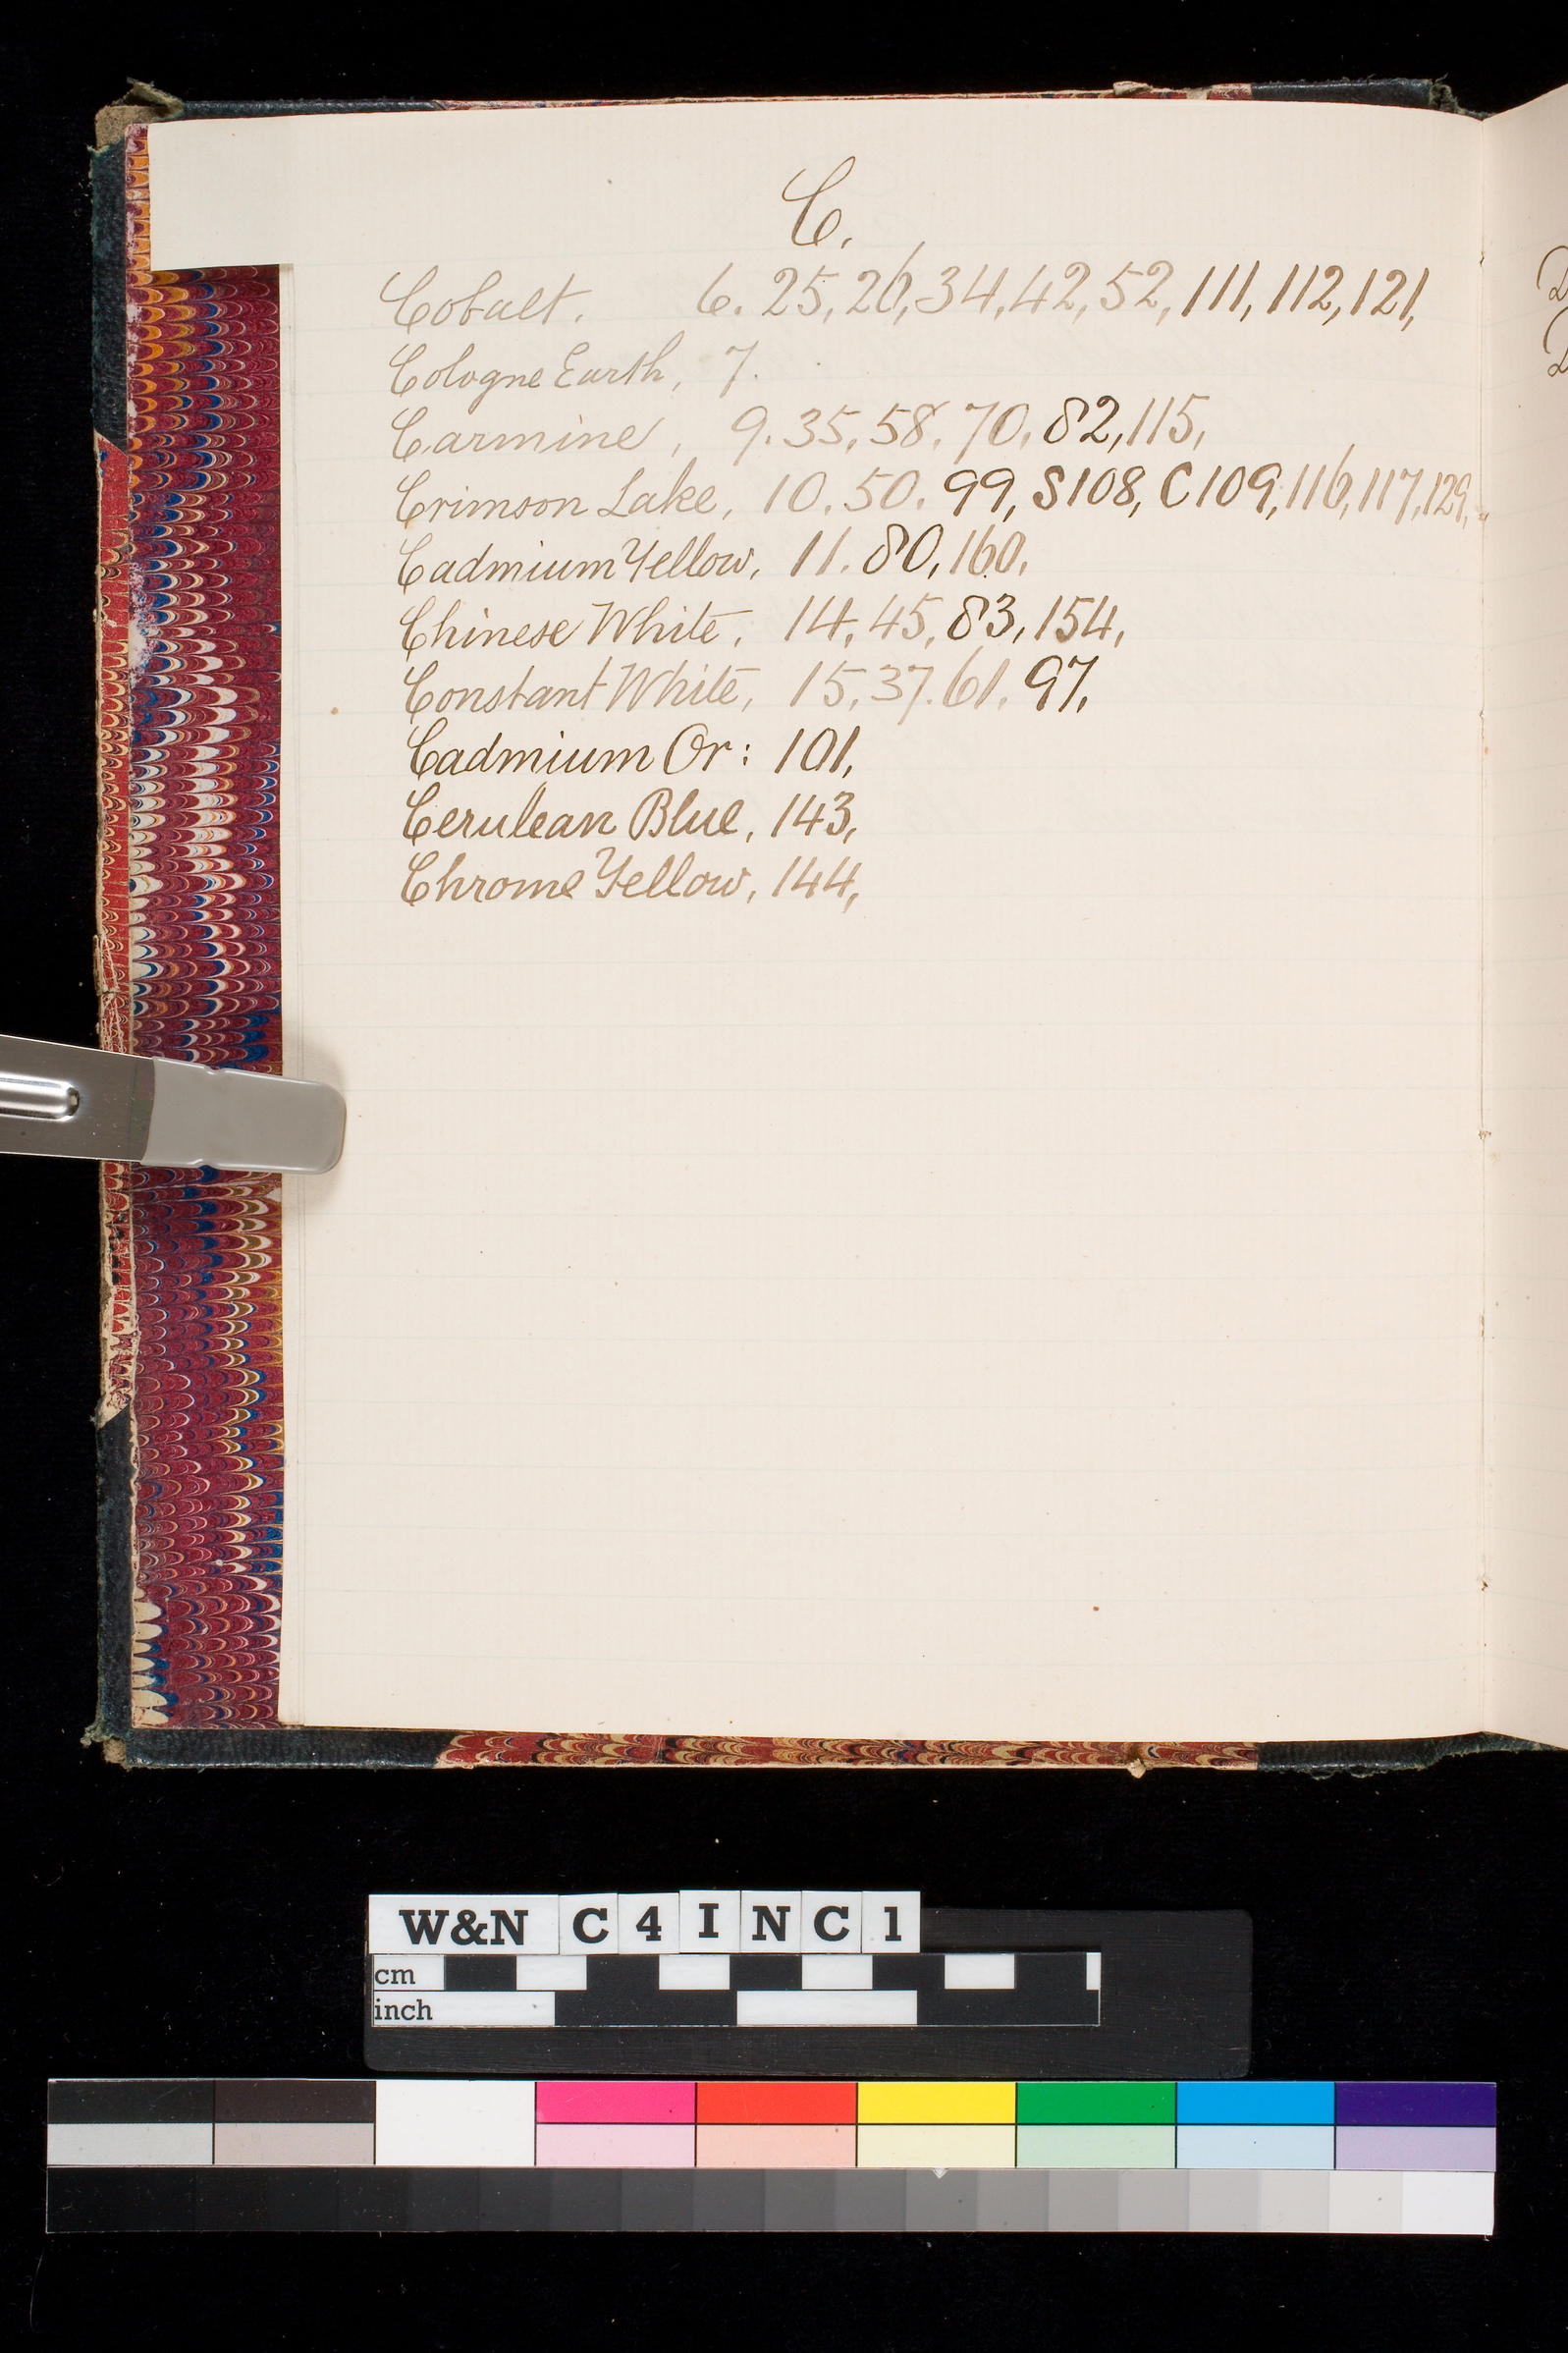 C.
Cobalt. 6. 25, 26, 34, 42, 52, 111, 112, 121,
Cologne Earth, 7.
Carmine, 9. 35, 58. 70, 82, 115,
Crimson Lake, 10. 50. 99, S108, C109, 116, 117, 129,
Cadmium Yellow, 11. 80, 160,
Chinese White, 14, 45, 83, 154,
Constant White, 15, 37. 61. 97,
Cadmium Or: 101,
Cerulean Blue, 143,
Chrome Yellow, 144,
W&N C 4 I N C 1
cm
inch